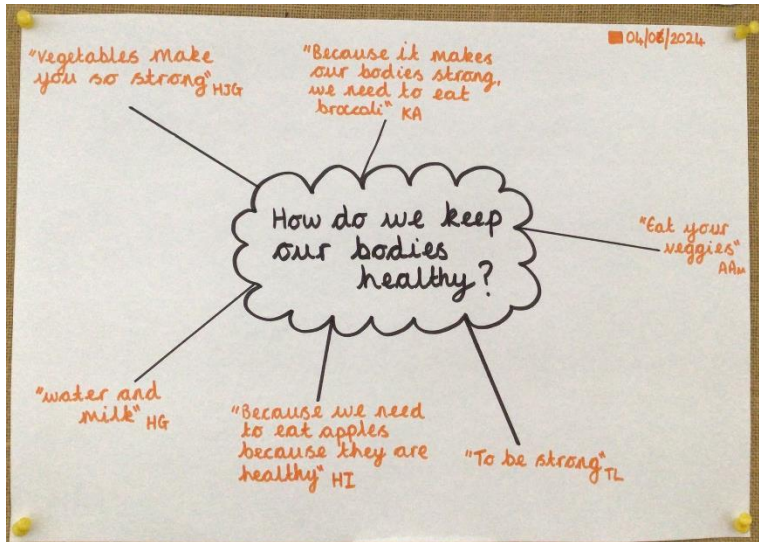 04/06/2024
"Vegetables make
you so strong" HJG
"Because it makes
our bodies strong,
we need to eat
broccoli" KA
How do we keep
our bodies
healthy?
"Eat your
veggies"
AAm
"water and
milk" HG
"Because we need
to eat apples
because they are
healthy" HI
"To be strong" TL